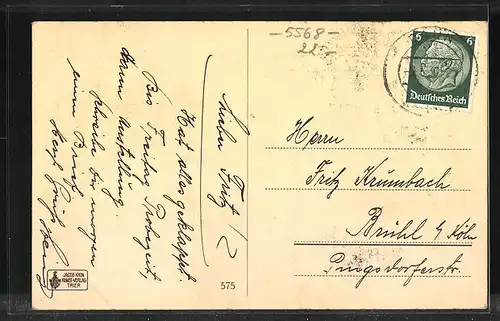 -5568-
225-
6 6
Deutsches Reich
Lieber Fritz!
Hat alles geklappt.
Bis Freitag Probezeit,
dann Anstellung.
Schreibe Dir morgen
einen Brief.
Herzl. Gruß
Herrn
Fritz Krumbach
Brühl b/Köln
Pingsdorferstr.
JACOB KRIN
KUNST-VERLAG
TRIER
575